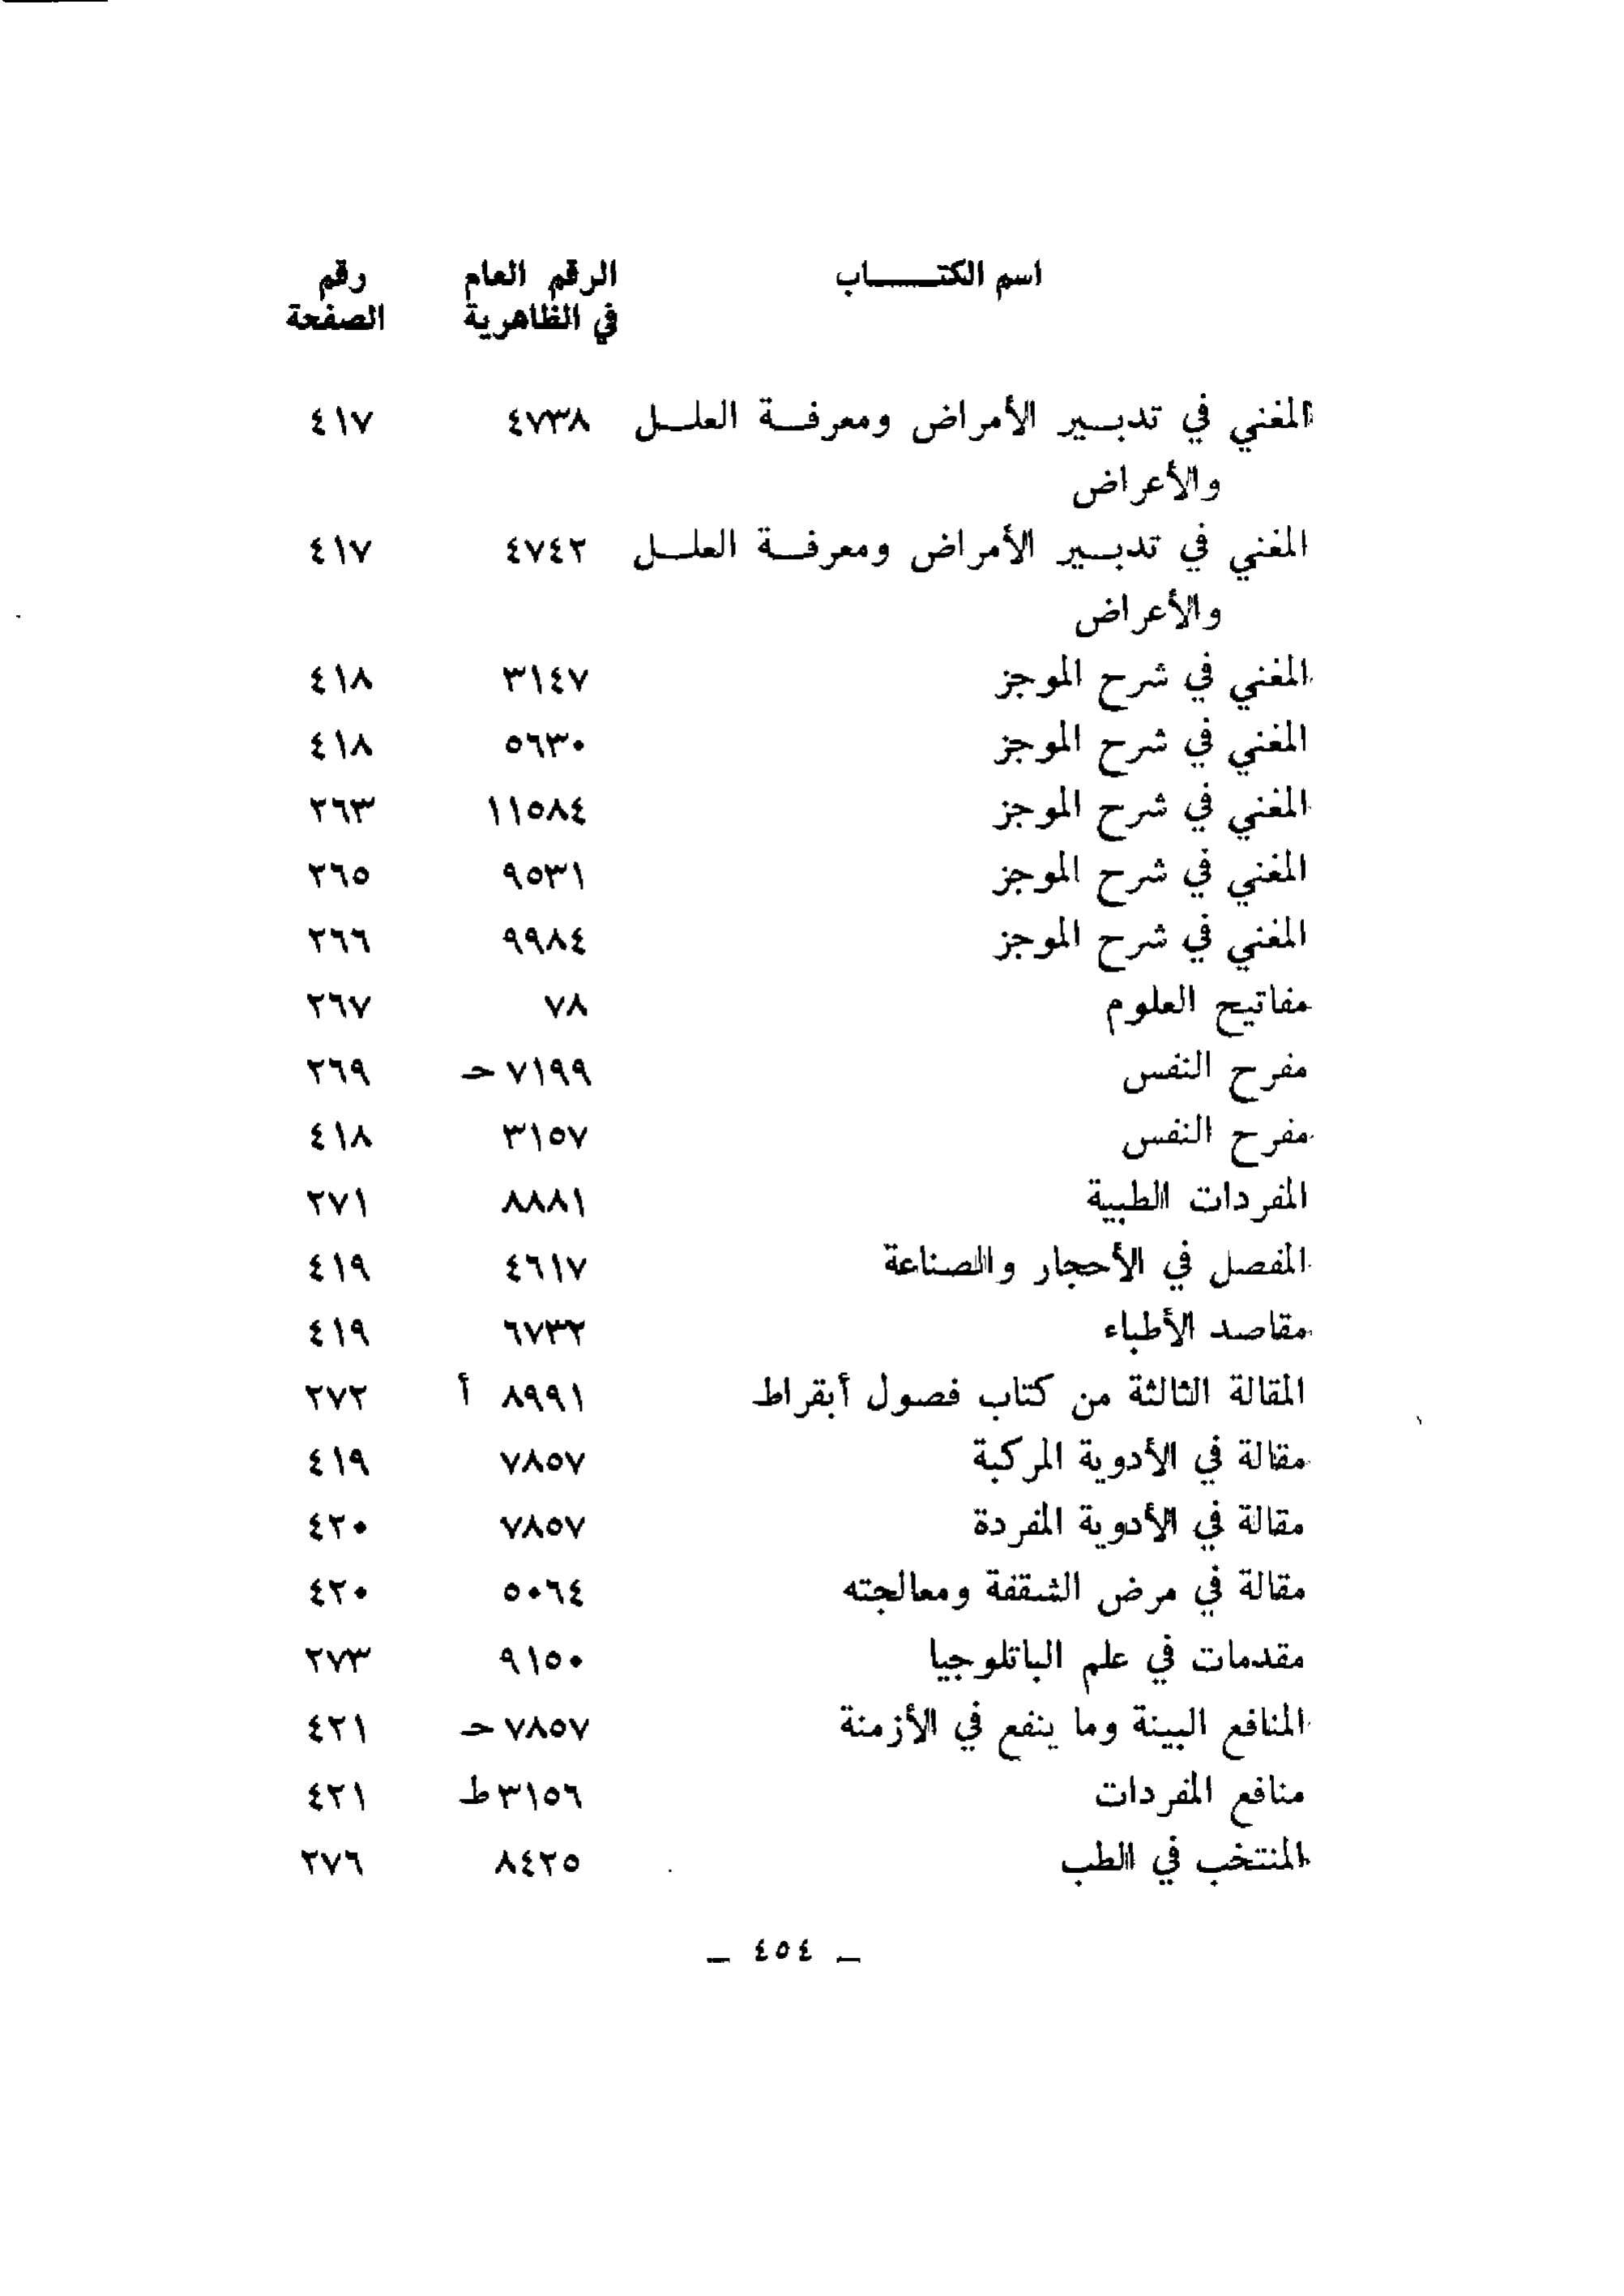 اسم الكتـــــاب الرقم العام رقم
في الظاهرية الصفحة
المغني في تدبـير الأمراض ومعرفـة العلـل ٤٧٣٨ ٤١٧
والأعراض
المغني في تدبـير الأمراض ومعرفـة العلـل ٤٧٤٢ ٤١٧
والأعراض
المغني في شرح الموجز ٣١٤٧ ٤١٨
المغني في شرح الموجز ٥٦٣٠ ٤١٨
المغني في شرح الموجز ١١٥٨٤ ٢٦٣
المغني في شرح الموجز ٩٥٣١ ٢٦٥
المغني في شرح الموجز ٩٩٨٤ ٢٦٦
مفاتيح العلوم ٧٨ ٢٦٧
مفرح النفس ٧١٩٩ حـ ٢٦٩
مفرح النفس ٣١٥٧ ٤١٨
المفردات الطبية ٨٨٨١ ٢٧١
المفصل في الأحجار والصناعة ٤٦١٧ ٤١٩
مقاصد الأطباء ٦٧٣٢ ٤١٩
المقالة الثالثة من كتاب فصول أبقراط ٨٩٩١ أ ٢٧٢
مقالة في الأدوية المركبة ٧٨٥٧ ٤١٩
مقالة في الأدوية المفردة ٧٨٥٧ ٤٢٠
مقالة في مرض الشقفة ومعالجته ٥٠٦٤ ٤٢٠
مقدمات في علم الباتلوجيا ٩١٥٠ ٢٧٣
المنافع البينة وما ينفع في الأزمنة ٧٨٥٧ حـ ٤٢١
منافع المفردات ٣١٥٦ ط ٤٢١
المنتخب في الطب ٨٤٢٥ ٢٧٦
ـ ٤٥٤ ـ